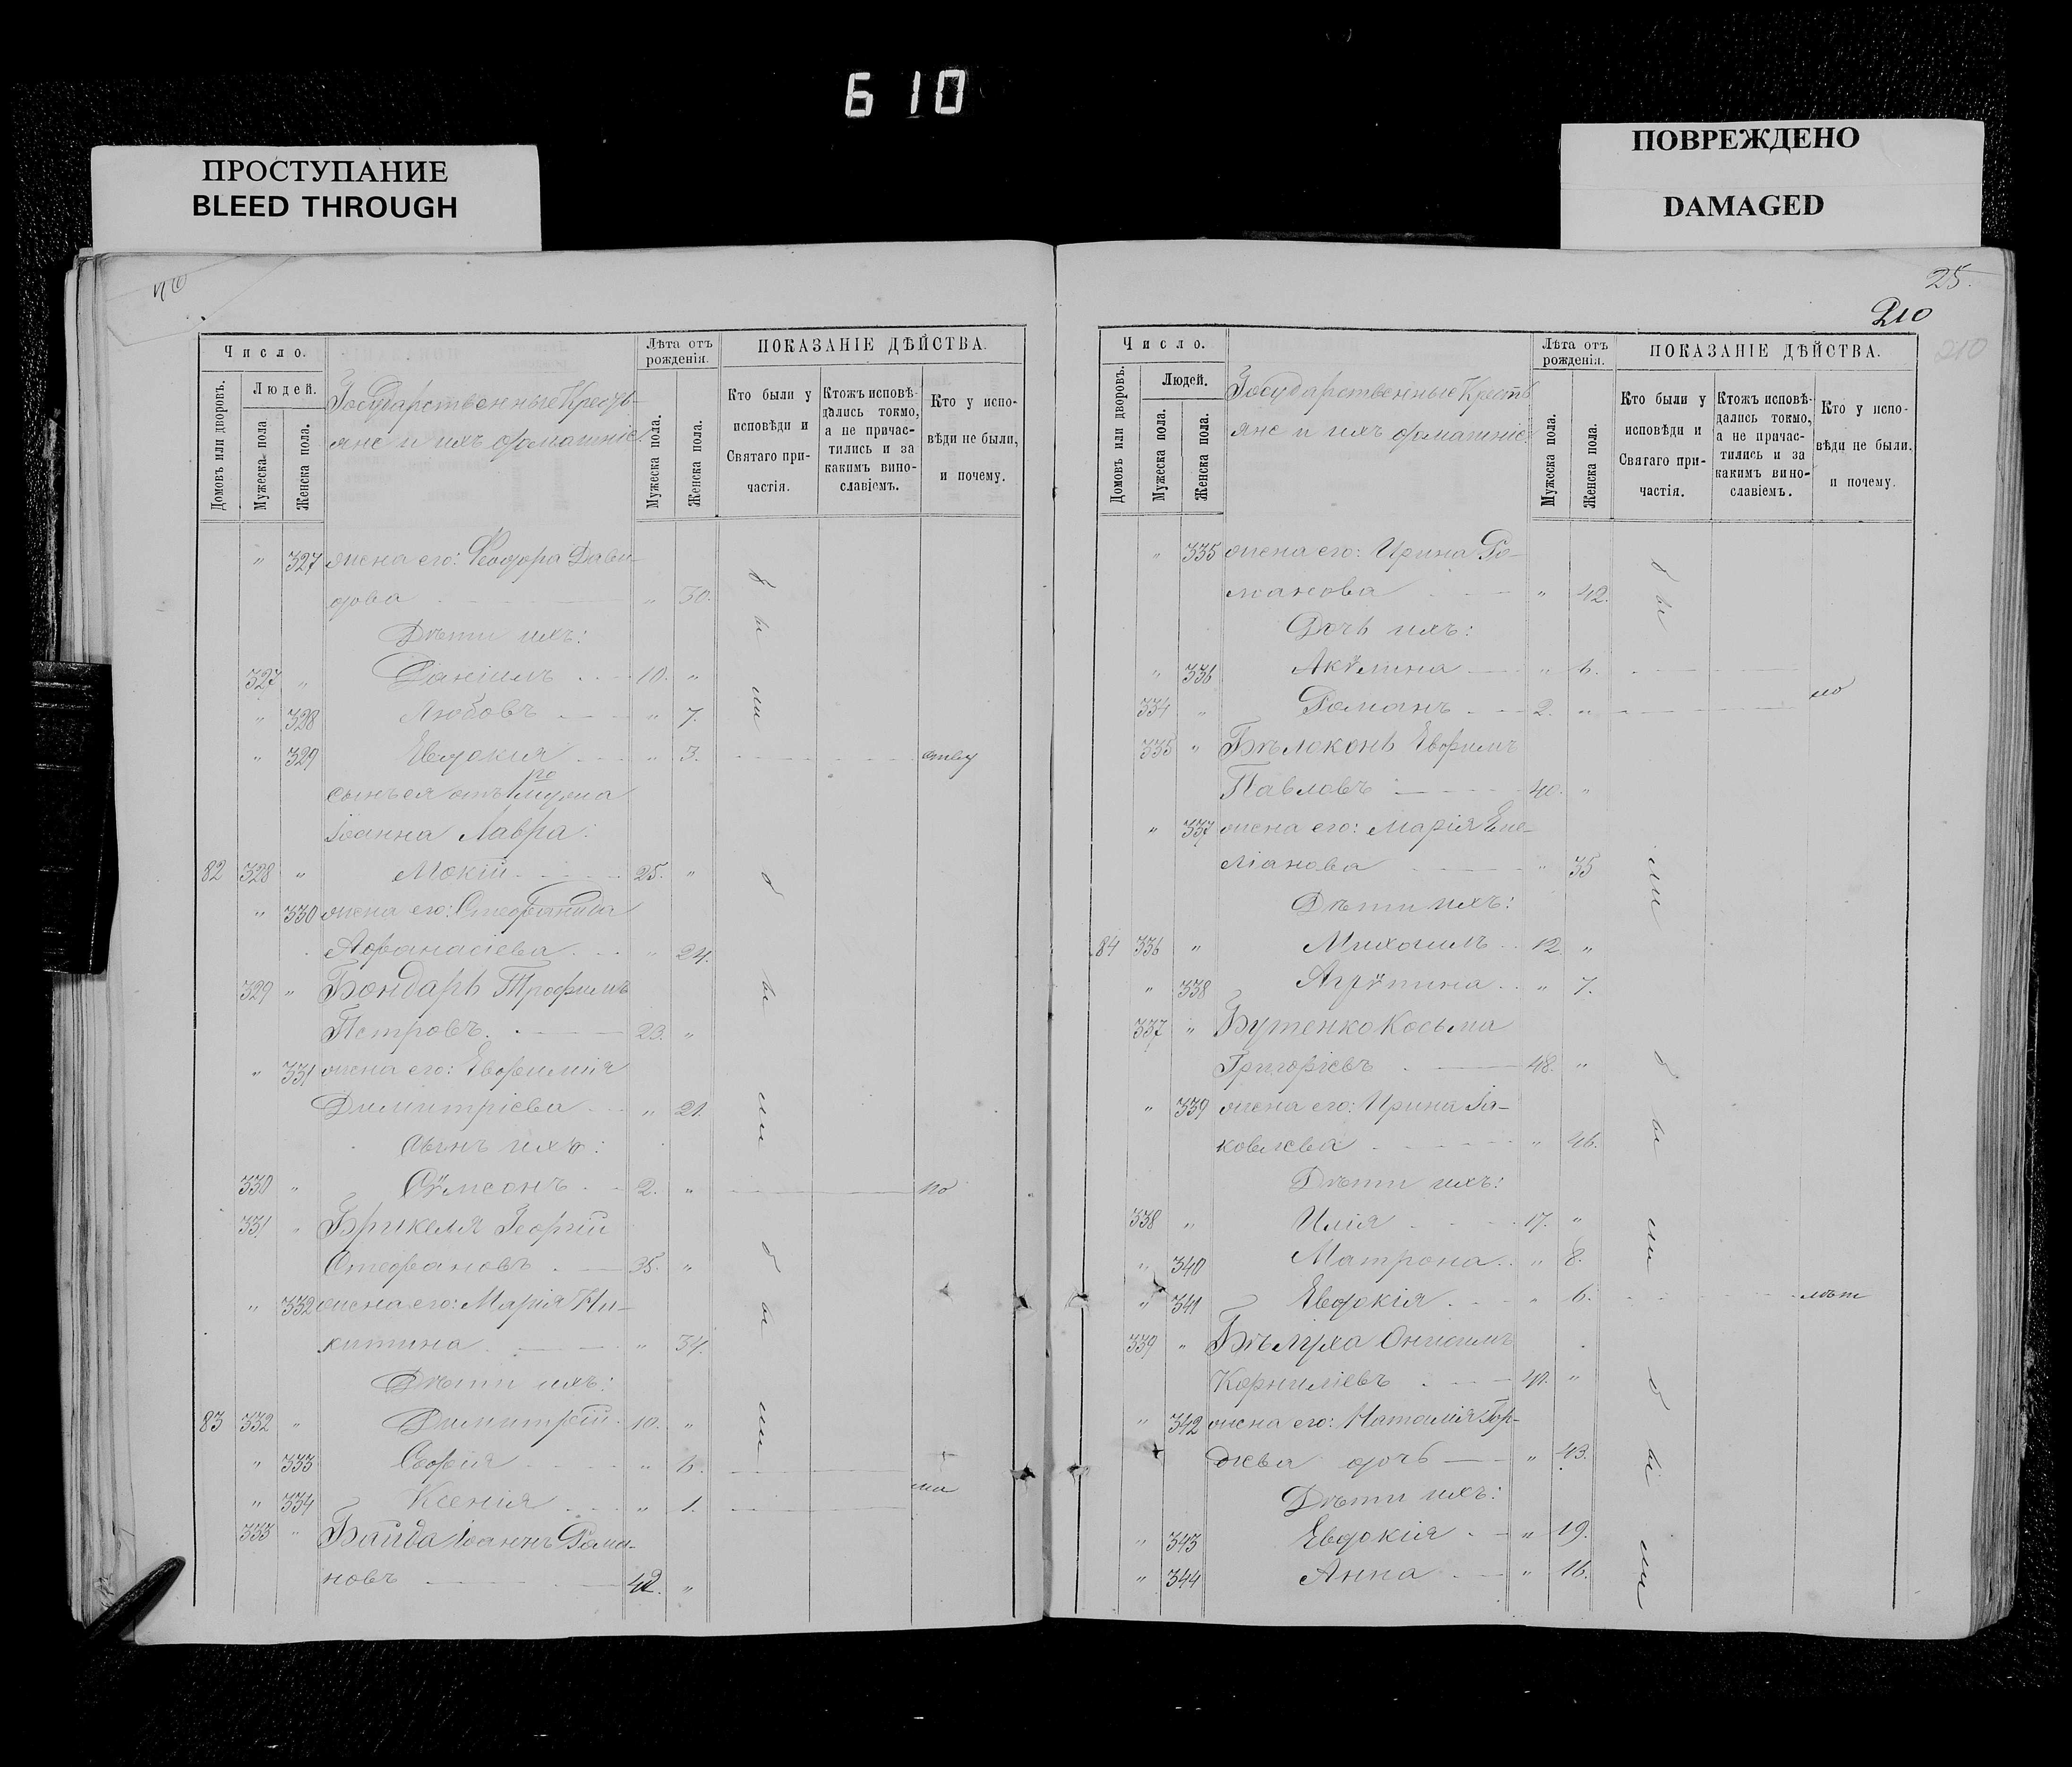 610
ПРОСТУПАНИЕ
BLEED THROUGH
ПОВРЕЖДЕНО
DAMAGED
по
Число.
Людей.
Домовъ или дворовъ.
Мужеска пола.
Женска пола.
Государственные Кресть-
яне и ихъ домашніе
Лѣта отъ
рожденія.
Мужеска пола.
Женска пола.
ПОКАЗАНІЕ ДѢЙСТВА.
Кто были у
исповѣди и
Святаго при-
частія.
Ктожъ исповѣ-
дались токмо,
а не причас-
тились и за
какимъ вино-
славіемъ.
Кто у испо-
вѣди не были,
и почему.
" 327 жена его: Ѳеодора Дави-
дова " 30.
Дѣти ихъ:
327 " Даніилъ 10. "
" 328 Любовь " 7.
" 329 Евдокія " 3.
сынъ ея отъ 1го мужа
Іоанна Лавра:
82 328 " Мокій 25. "
" 330 жена его: Стефанида
Афанасіева " 24.
329 " Бондарь Трофимъ
Петровъ. 23. "
" 331 жена его: Евфимія
Димитріева " 21.
сынъ ихъ:
330 " Сѵмеонъ 2. " по
331 " Брикеля Георгій
Стефановъ 35. "
" 332 жена его: Марія Ни-
китина " 34.
Дѣти ихъ:
83 332 " Димитрій 10. "
" 333 Софія " 6.
" 334 Ксенія " 1.
333 " Байда Іоаннъ Рома-
новъ 42. "
бы
ли
бы
ли
бы
ли
25.
210
210
Число.
Людей.
Домовъ или дворовъ.
Мужеска пола.
Женска пола.
Государственные Кресть
яне и ихъ домашніе
Лѣта отъ
рожденія.
Мужеска пола.
Женска пола.
ПОКАЗАНІЕ ДѢЙСТВА.
Кто были у
исповѣди и
Святаго при-
частія.
Ктожъ исповѣ-
дались токмо,
а не причас-
тились и за
какимъ вино-
славіемъ.
Кто у испо-
вѣди не были.
и почему.
" 335 жена его: Ирина Ро-
манова " 42.
Дочь ихъ:
" 336 Акѵлина " 6.
334 " Романъ 2. "
335 " Бѣлоконь Евфимъ
Павловъ 40. "
" 337 жена его: Марія Еме-
ліанова " 35
Дѣти ихъ:
84 336 " Михаилъ 12. "
" 338 Агрѵпина " 7.
337 " Бутенко Косьма
Григорьевъ 48. "
" 339 жена его: Ирина Іа-
ковлева " 46.
Дѣти ихъ:
338 " Илія 17. "
" 340 Матрона " 8.
" 341 Евдокія " 6. лѣт
339 " Бѣлуха Онисимъ
Корниліевъ 41. "
" 342 жена его: Наталія Гор-
дѣева дочь " 43.
Дѣти ихъ:
" 343 Евдокія " 19.
" 344 Анна " 16.
бы
ли
бы
ли
бы
ли